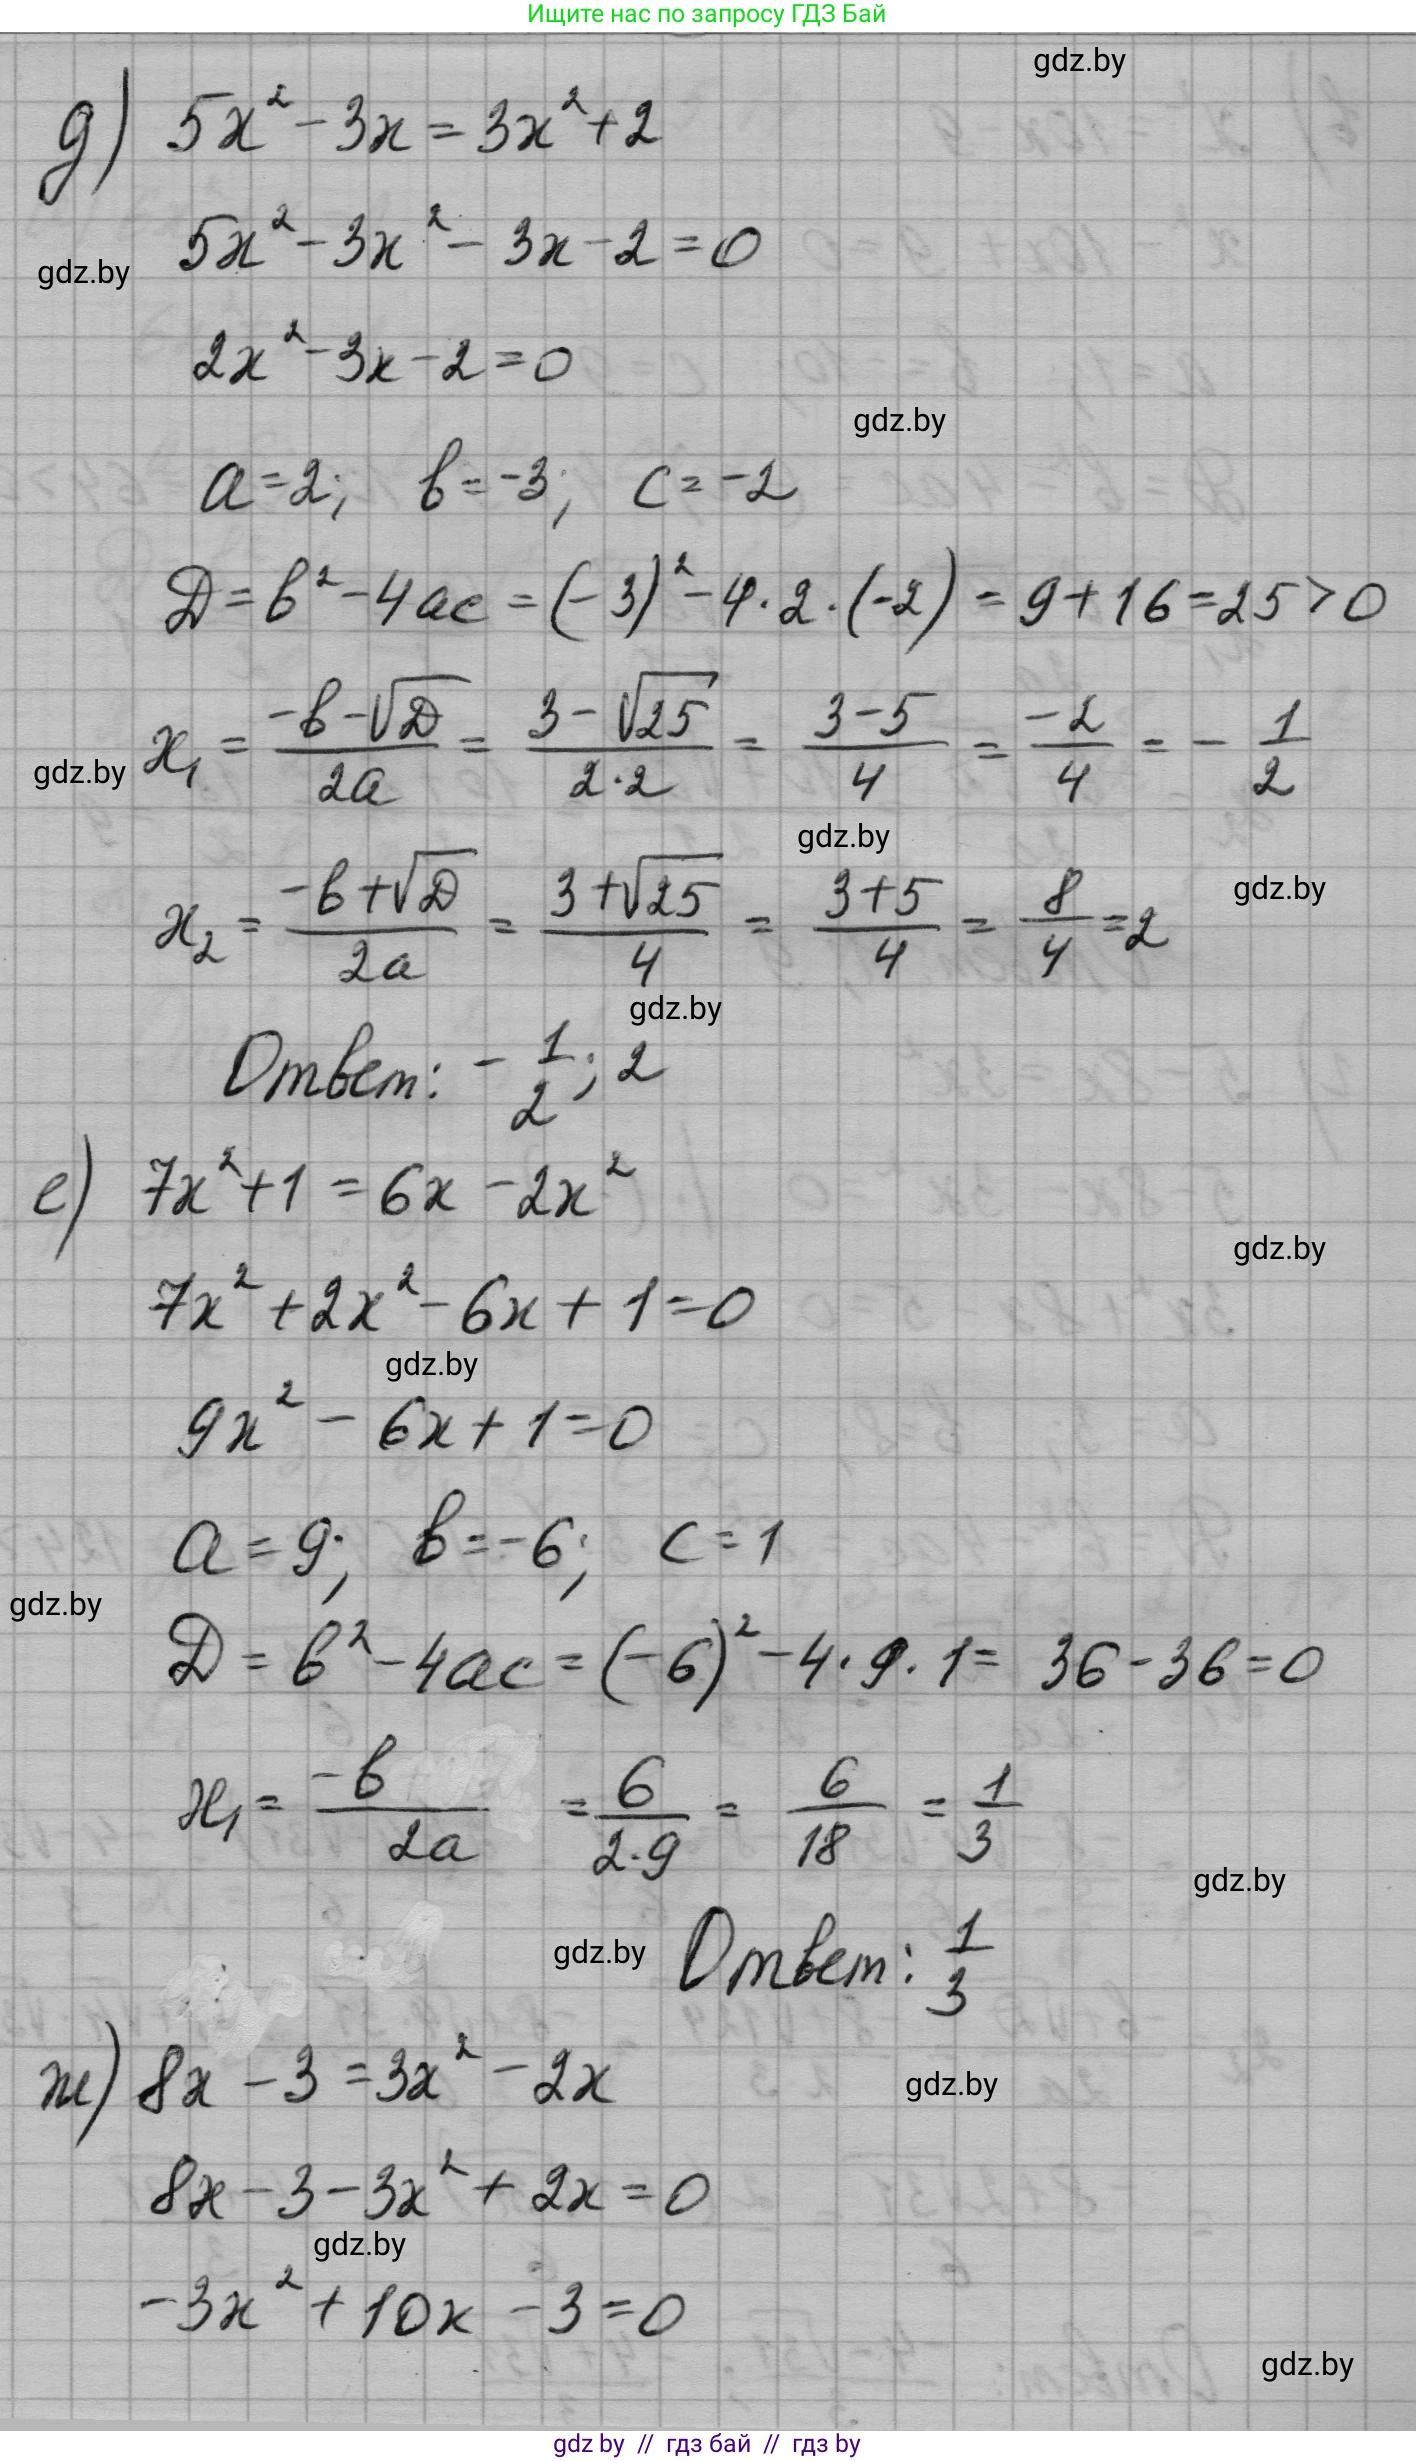 Ищите нас по запросу ГДЗ Бай
gdz.by
д) 5x² - 3x = 3x² + 2
5x² - 3x² - 3x - 2 = 0
gdz.by
2x² - 3x - 2 = 0
gdz.by
a = 2; b = -3; c = -2
D = b² - 4ac = (-3)² - 4·2·(-2) = 9 + 16 = 25 > 0
x₁ = (-b - √D)/(2a) = (3 - √25)/(2·2) = (3 - 5)/4 = -2/4 = -1/2
gdz.by
gdz.by
gdz.by
x₂ = (-b + √D)/(2a) = (3 + √25)/4 = (3 + 5)/4 = 8/4 = 2
gdz.by
Ответ: -1/2; 2
е) 7x² + 1 = 6x - 2x²
gdz.by
7x² + 2x² - 6x + 1 = 0
gdz.by
9x² - 6x + 1 = 0
a = 9; b = -6; c = 1
gdz.by
D = b² - 4ac = (-6)² - 4·9·1 = 36 - 36 = 0
x₁ = -b/(2a) = 6/(2·9) = 6/18 = 1/3
gdz.by
gdz.by
Ответ: 1/3
ж) 8x - 3 = 3x² - 2x
gdz.by
8x - 3 - 3x² + 2x = 0
gdz.by
-3x² + 10x - 3 = 0
gdz.by
gdz by // гдз бай // гдз by